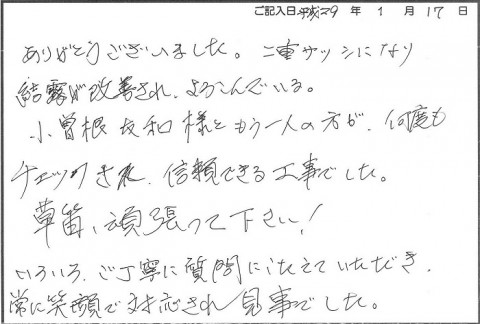 ご記入日 平成29 年 1 月 17 日
ありがとうございました。二重サッシになり
結露が改善され、よろこんでいる。
小曽根友和様ともう一人の方が、何度も
チェックされ、信頼できる工事でした。
草笛、頑張って下さい!
いろいろ、ご丁寧に質問にこたえていただき、
常に笑顔で対応され見事でした。